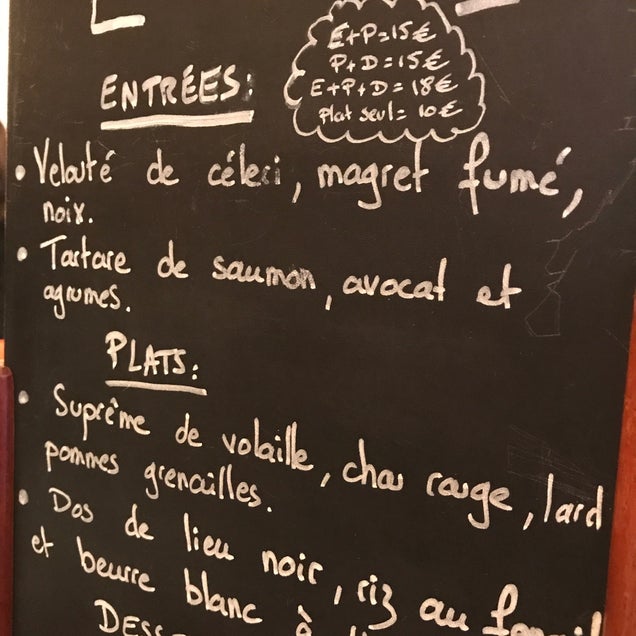 E+P=15€
P+D=15€
E+P+D=18€
Plat seul= 10€
ENTRÉES:
• Velouté de céleri, magret fumé,
noix.
• Tartare de saumon, avocat et
agrumes.
PLATS:
• Suprême de volaille, chou rouge, lard
pommes grenailles.
• Dos de lieu noir, riz au
et beurre blanc à